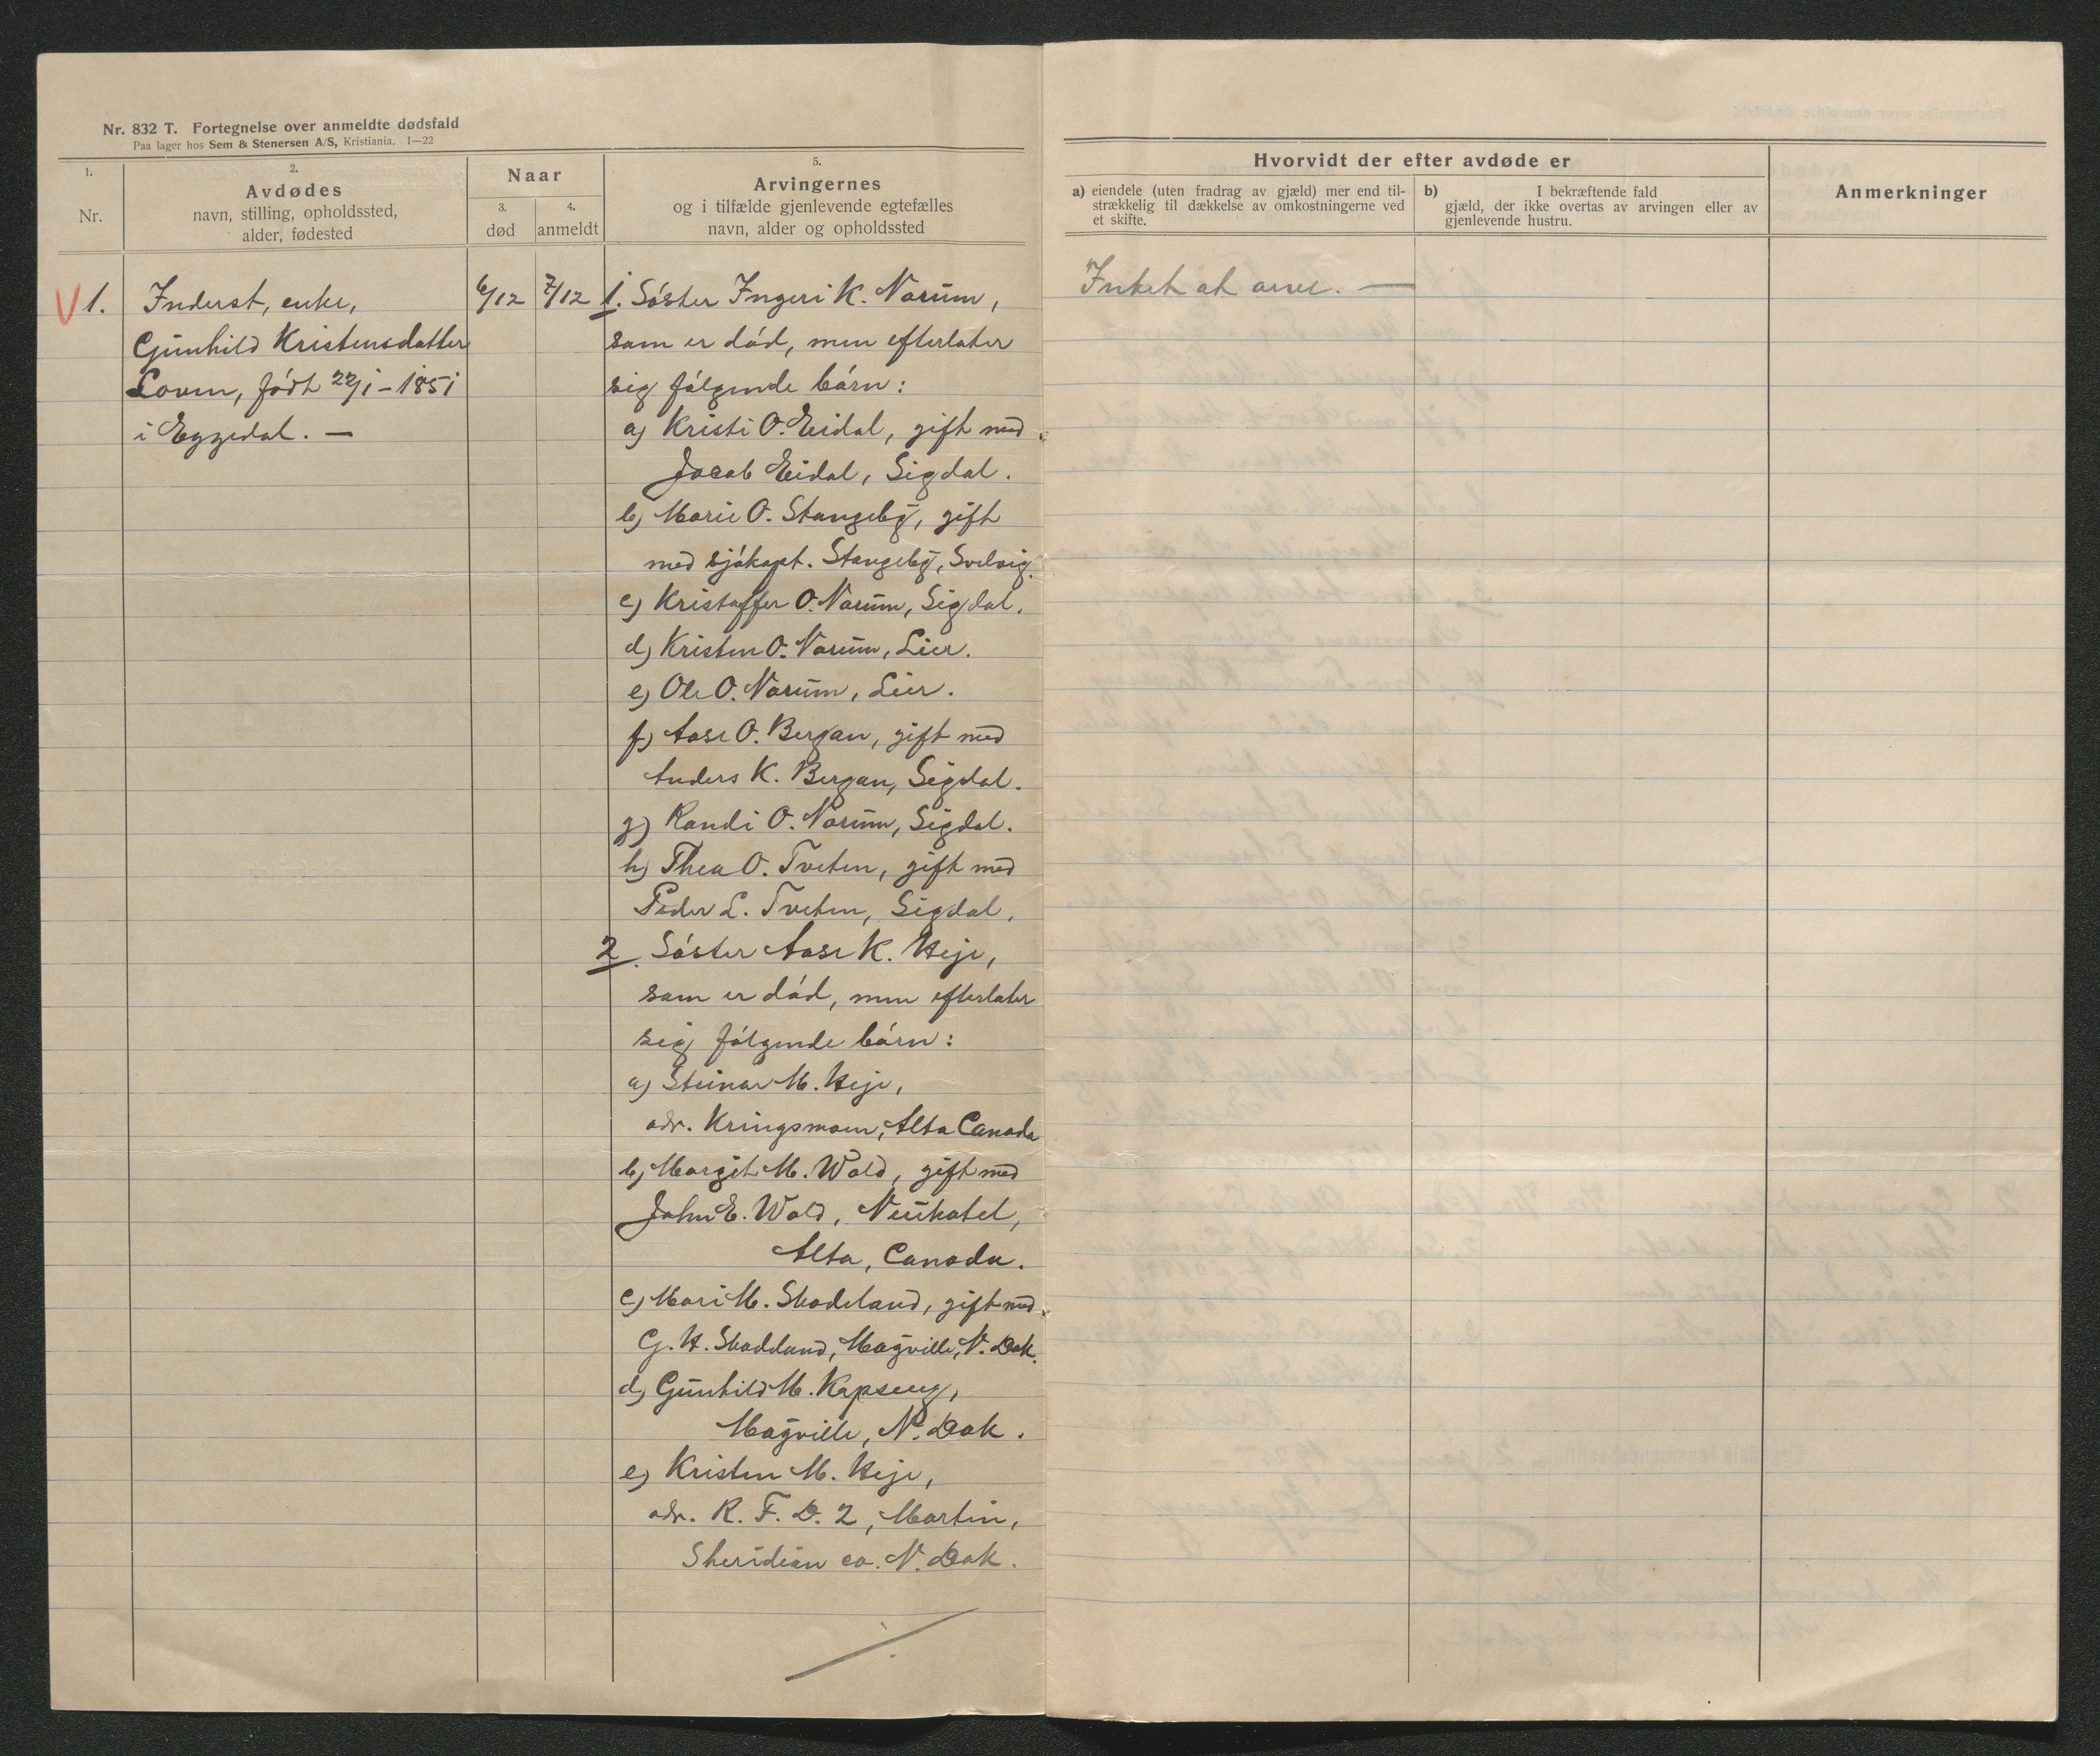 Nr. 832 T. Fortegnelse over anmeldte dødsfald
Paa lager hos Sem & Stenersen A/S, Kristiania. I—22
1.
Nr.
2.
Avdødes
navn, stilling, opholdssted,
alder, fødested
Naar
3.
død
4.
anmeldt
5.
Arvingernes
og i tilfælde gjenlevende egtefælles
navn, alder og opholdssted
Hvorvidt der efter avdøde er
a) eiendele (uten fradrag av gjæld) mer end til-
strækkelig til dækkelse av omkostningerne ved
et skifte.
b) I bekræftende fald
gjæld, der ikke overtas av arvingen eller av
gjenlevende hustru.
Anmerkninger
V 1.
Inderst, enke,
Gunhild Kristensdatter
Loven, født 22/1-1851
i Eggedal. —
6/12
7/12
1. Søster Ingeri K. Narum,
som er død, men efterlater
sig følgende børn:
a) Kristi O. Eidal, gift med
Jacob Eidal, Sigdal.
b) Marie O. Stangeby, gift
med sjøkapt. Stangeby, Svelvig.
c) Kristoffer O. Narum, Sigdal.
d) Kristen O. Narum, Lier.
e) Ole O. Narum, Lier.
f) Aase O. Bergan, gift med
Anders K. Bergan, Sigdal.
g) Randi O. Narum, Sigdal.
h) Thea O. Tveten, gift med
Peder L. Tveten, Sigdal.
2. Søster Aase K. Heje,
som er død, men efterlater
sig følgende børn:
a) Steinar M. Heje,
adr. Kringsmoen, Alta Canada
b) Margit M. Wold, gift med
John E. Wold, Neukatel,
Alta, Canada.
c) Mari M. Skadeland, gift med
G. H. Skaddland, Mayville, N. Dak.
d) Gunhild M. Kapseng,
Mayville, N. Dak.
e) Kristen M. Heje,
adr. R. F. D. 2, Martin,
Sheridian co. N. Dak.
Intet at arve. —